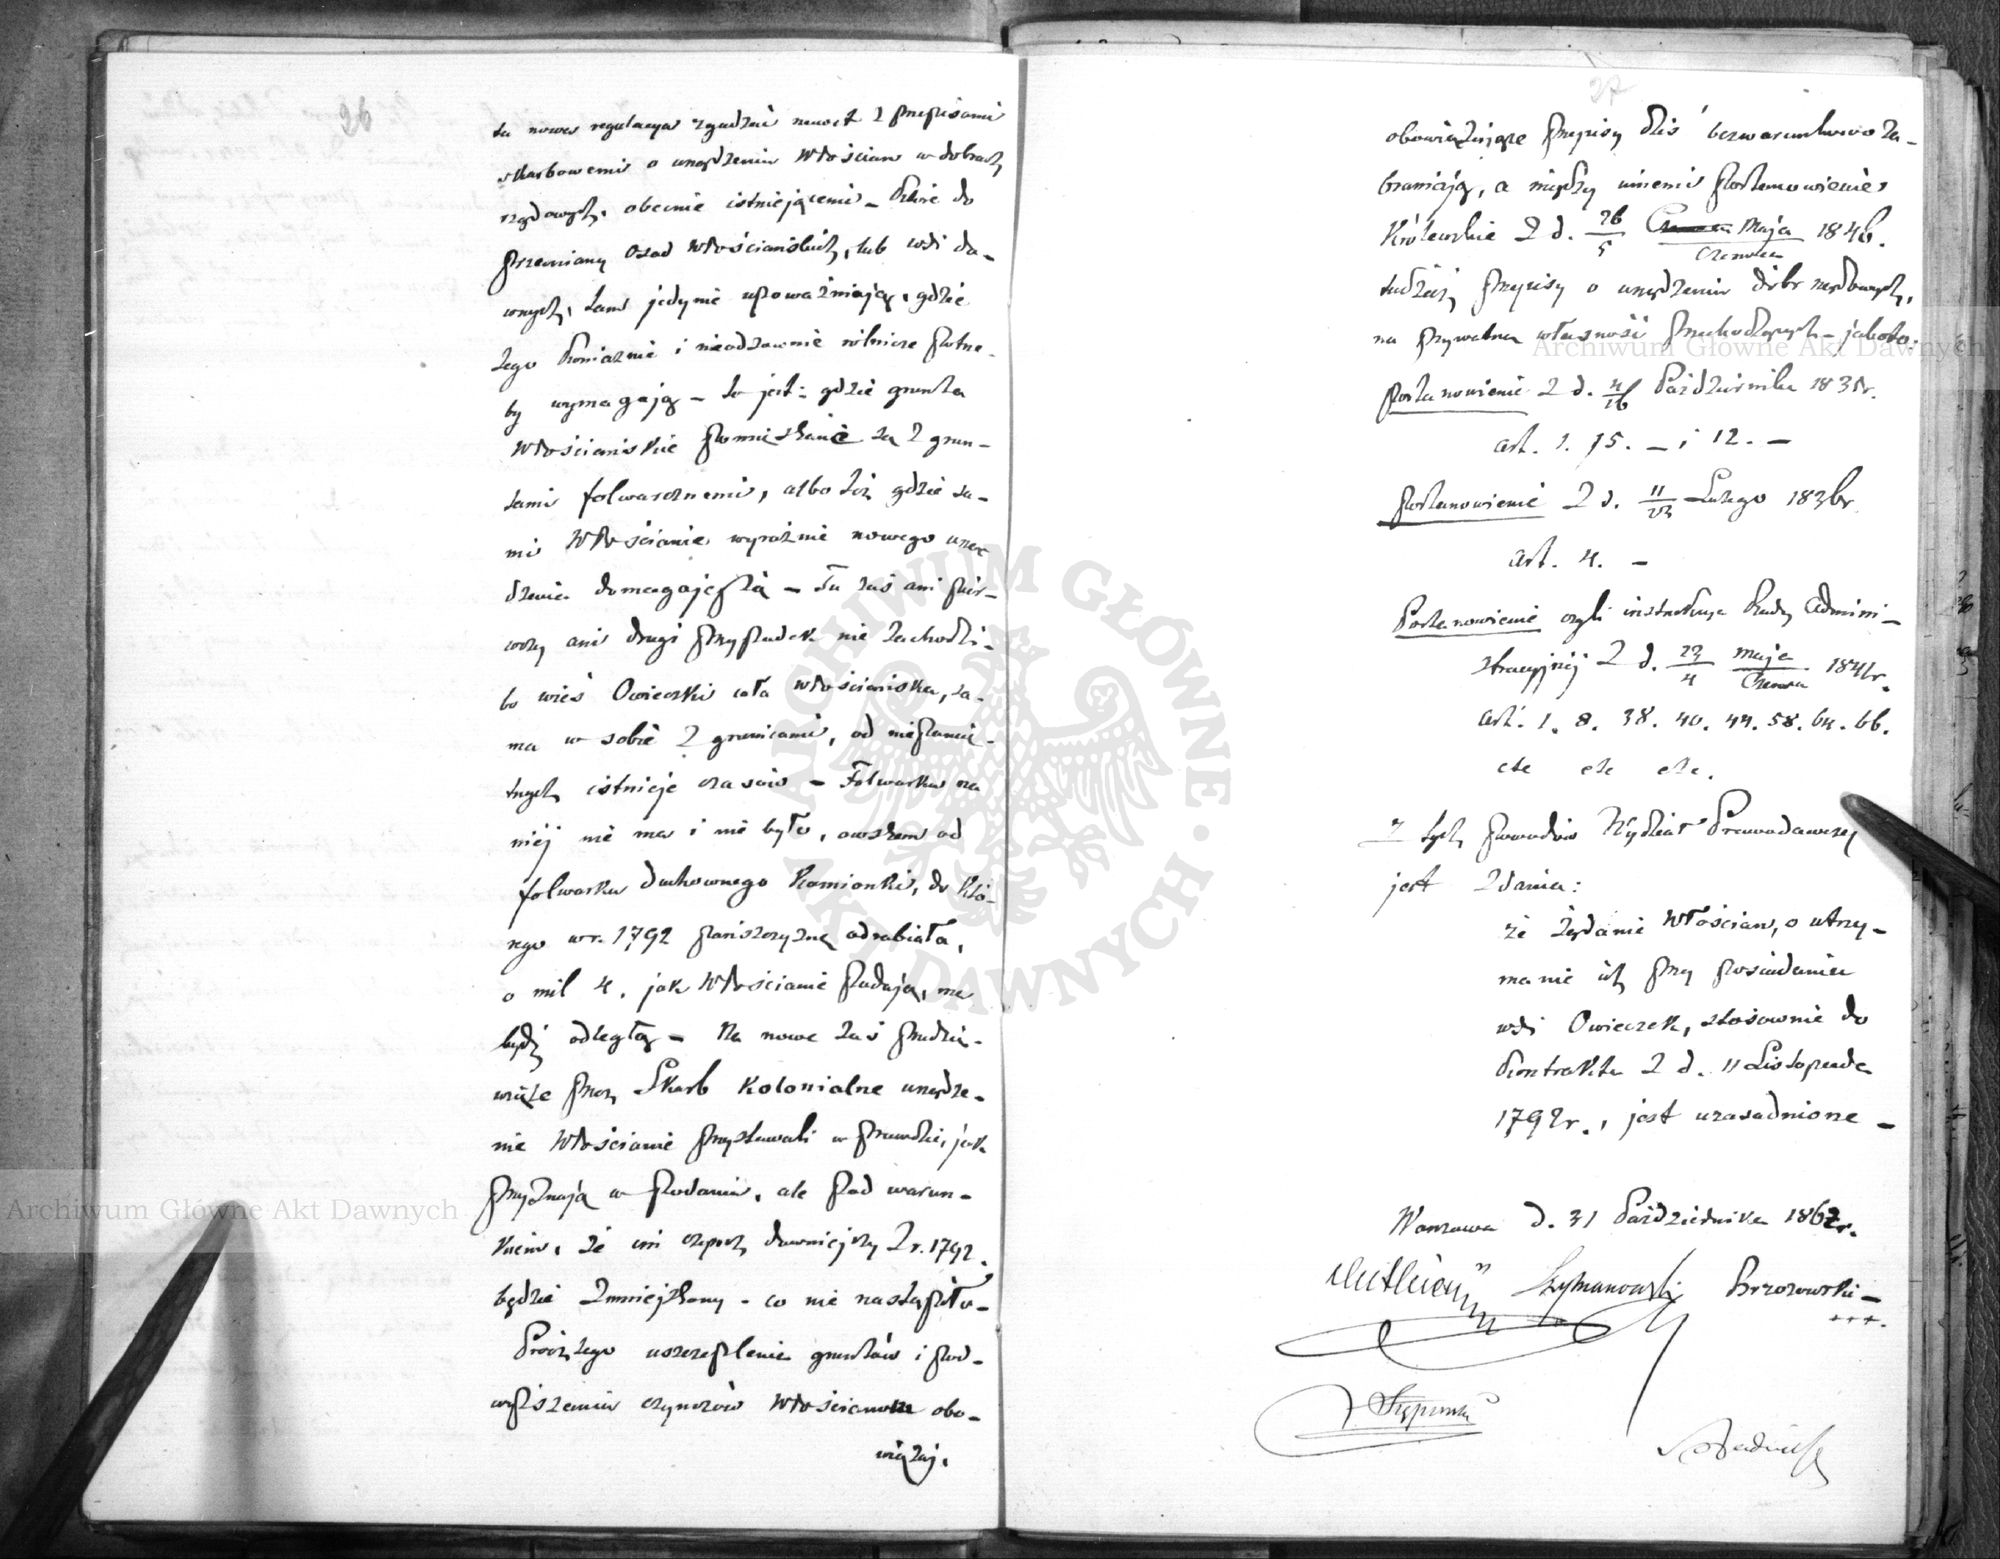 26
ta nowa regulacya zgadzać nawet z przepisami
skarbowemi o urządzeniu Włościan w dobrach
rządowych, obecnie istniejącemi – Które do
przemiany Osad Włościańskich, lub wsi da-
wnych, tam jedynie upoważniają, gdzie
tego koniecznie i nieodzownie rolnicze potrze-
by wymagają – to jest: gdzie grunta
Włościańskie pomieszane są z grun-
tami folwarcznemi, albo też gdzie sa-
mi Włościanie wyraźnie nowego urzą
dzenia domagają się – Tu zaś ani pier-
wszy ani drugi przypadek nie zachodzi –
bo wieś Owieczki cała włościańska, sa-
ma w sobie z granicami, od niepamię-
tnych istnieje czasów – Folwarku na
niej nie ma i nie było, owszem od
folwarku duchownego Kamionki, do któ-
rego w r. 1792 pańszczyznę odrabiała,
o mil 4. jak Włościanie podają, ma
być odległą – Na nowe zaś
przez Skarb Kolonialne urządze-
nie Włościanie przystawali w prawdzie, jak
przyznają w podaniu, ale pod warun-
kiem, że im czynsz dawniejszy z r. 1792.
będzie zmniejszony – co nie nastąpiło –
Prócz tego uszczuplenie gruntów i pod-
wyższenia czynszów Włościanom obo-
wiązuj.
27
obowiązujące przepisy dziś bezwarunkowo za-
braniają, a między innemi postanowienie
Królewskie z d. 26/5 Maja/Czerwca 1846.
tudzież przepisy o urządzeniu dóbr rządowych,
na prywatną własność przechodzących – jakoto:
Postanowienie z d. 4/16 Października 1835r.
art. 1. 15. – i 12. –
Postanowienie z d. 11/23 Lutego 1836r.
art. 4. –
Postanowienie czyli instrukcya Rady Admini-
stracyjnej z d. 23/4 maja/Czerwca 1841r.
art. 1. 8. 38. 40. 44. 58. 64. 66.
etc etc etc.
Z tych powodów Wydział Prawodawczy
jest zdania:
że żądanie Włościan, o utrzy-
manie ich przy posiadaniu
wsi Owieczek, stosownie do
Kontraktu z d. 11 Listopada
1792r., jest uzasadnione –
Warszawa d. 31 Października 1862r.
Szymanowski Brzozowski –
+++.
Archiwum Główne Akt Dawnych
Archiwum Główne Akt Dawnych
ARCHIWUM GŁÓWNE • AKT DAWNYCH •